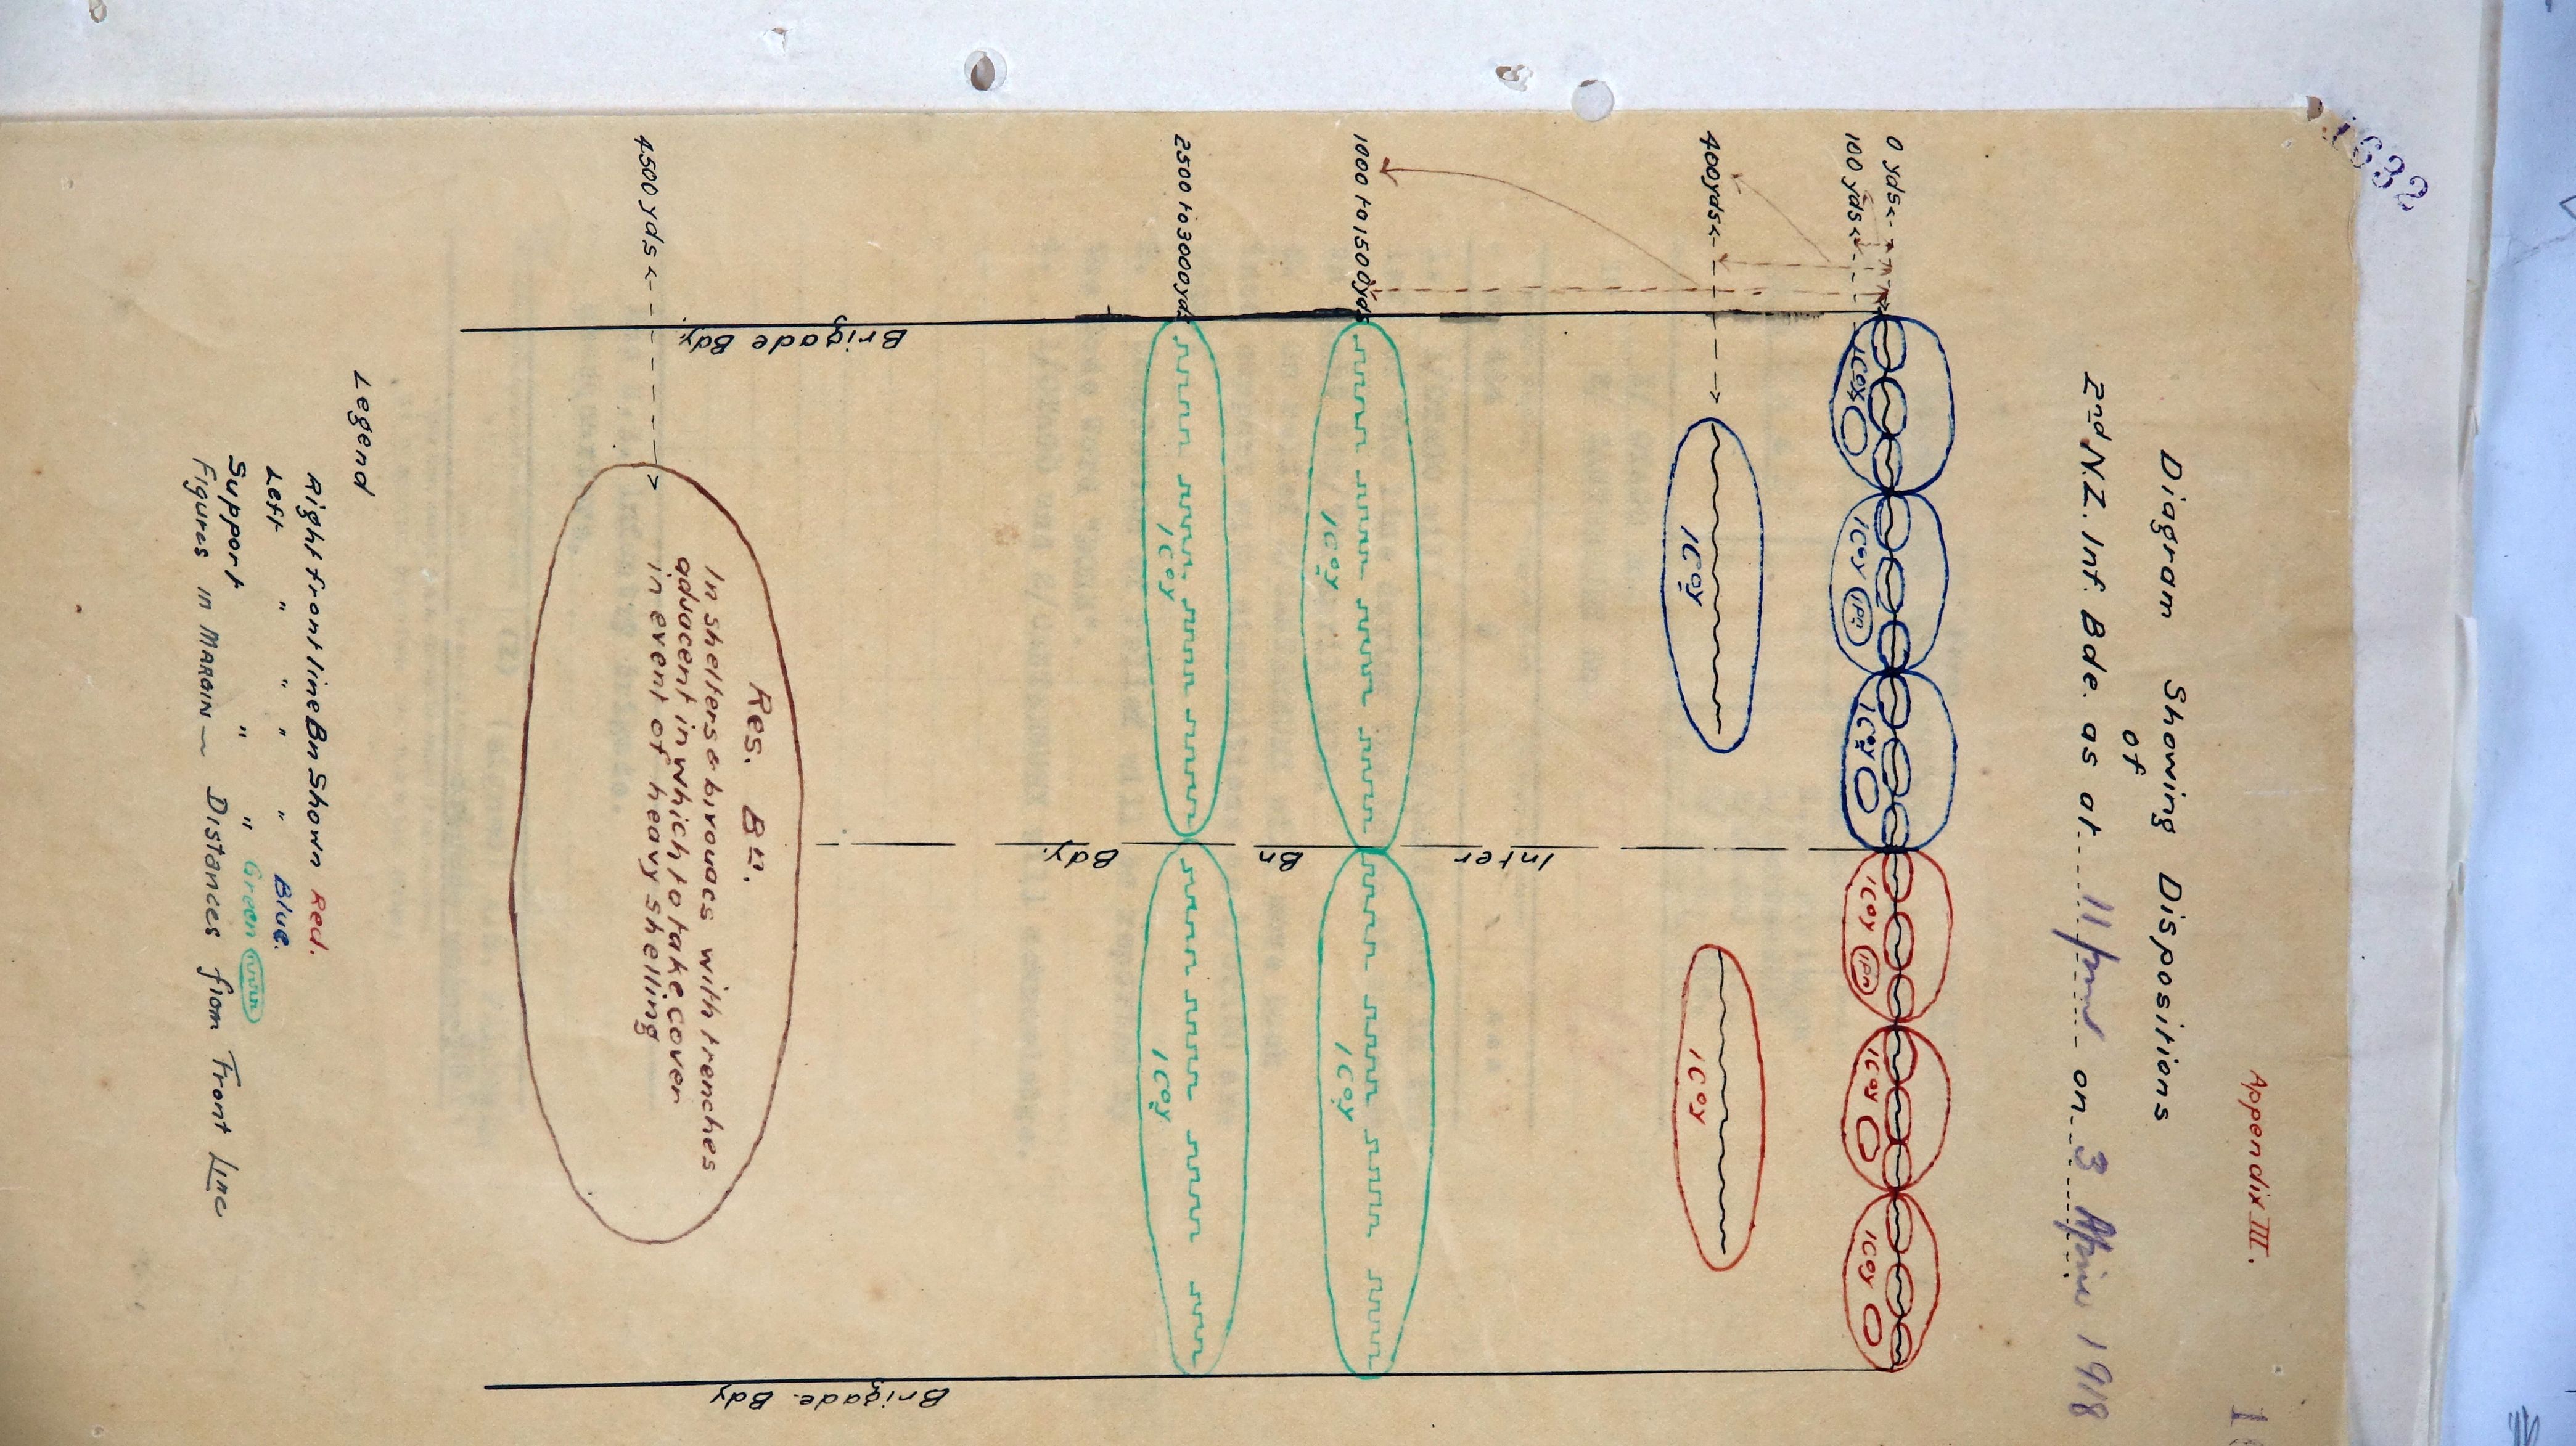 1632
Appendix III.
Diagram Showing Dispositions
of
2nd N.Z. Inf. Bde. as at 11 pm on 3 April 1918
0 yds
100 yds
1 Coy
1 Coy 1 Pn
1 Coy
1 Coy 1 Pn
1 Coy
1 Coy
400 yds
1 Coy
1 Coy
1000 to 1500 yds
1 Coy
1 Coy
2500 to 3000 yds
1 Coy
1 Coy
Inter Bn Bdy.
Brigade Bdy.
Brigade. Bdy
4500 yds
Res. Bn.
In shelters & bivouacs with trenches
adjacent in which to take cover
in event of heavy shelling
Legend
Right front line Bn Shown Red.
Left " " " " Blue.
Support " " Green
Figures in MARGIN — Distances from Front Line